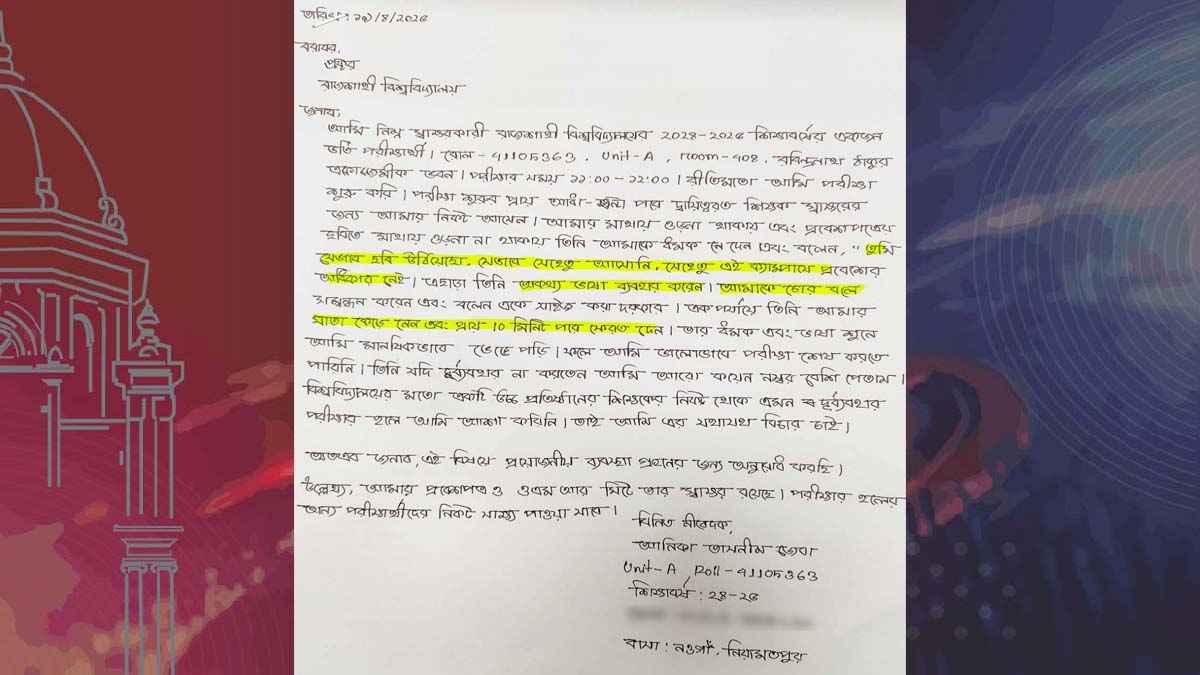 তারিখ: ১৯/৪/২০২৫
বরাবর,
প্রক্টর
রাজশাহী বিশ্ববিদ্যালয়
জনাব,
আমি নিম্ন স্বাক্ষরকারী রাজশাহী বিশ্ববিদ্যালয়ের ২০২৪-২০২৫ শিক্ষাবর্ষের একজন
ভর্তি পরীক্ষার্থী। রোল - 41105363, Unit-A, room-408, রবিন্দ্রনাথ ঠাকুর
একাডেমিক ভবন। পরীক্ষার সময় ১১:০০ - ১২:০০। রীতিমতো আমি পরীক্ষা
শুরু করি। পরীক্ষা শুরুর প্রায় আধা-ঘন্টা পরে দায়িত্বরত শিক্ষক স্বাক্ষরের
জন্য আমার নিকট আসেন। আমার মাথায় ওড়না থাকায় এবং প্রবেশপত্রের
ছবিতে মাথায় ওড়না না থাকায় তিনি আমাকে ধমক দেন এবং বলেন, "তুমি
যেভাবে ছবি উঠিয়েছো, সেভাবে যেহেতু আসোনি, সেহেতু এই ক্যাম্পাসে প্রবেশের
অধিকার নেই। এছাড়া তিনি অকথ্য ভাষা ব্যবহার করেন। আমাকে চোর বলে
সম্বন্ধন করেন এবং বলেন একে করা দরকার। এক পর্যায়ে তিনি আমার
খাতা কেড়ে নেন এবং প্রায় 10 মিনিট পরে ফেরত দেন। তার ধমক এবং ভাষা শুনে
আমি মানষিকভাবে ভেঙে পড়ি। ফলে আমি ভালোভাবে পরীক্ষা শেষ করতে
পারিনি। তিনি যদি দুর্ব্যবহার না করতেন আমি আরো কয়েক নম্বর বেশি পেতাম।
বিশ্ববিদ্যালয়ের মতো একটি উচ্চ প্রতিষ্ঠানের শিক্ষকের নিকট থেকে এমন দুর্ব্যবহার
পরীক্ষার হলে আমি আশা করিনি। তাই আমি এর যথাযথ বিচার চাই।
অতএব জনাব, এই বিষয়ে প্রয়োজনীয় ব্যবস্থা গ্রহনের জন্য অনুরোধ করছি।
উল্লেখ্য, আমার প্রবেশপত্র ও ওএমআর সিটে তার স্বাক্ষর রয়েছে। পরীক্ষার হলের
অন্য পরীক্ষার্থীদের নিকট সাক্ষ্য পাওয়া যাবে।
বিনিত নিবেদক,
আনিকা তাসনীম
Unit-A, Roll-41105363
শিক্ষাবর্ষ: ২৪-২৫
বাসা: নওগাঁ, নিয়ামতপুর